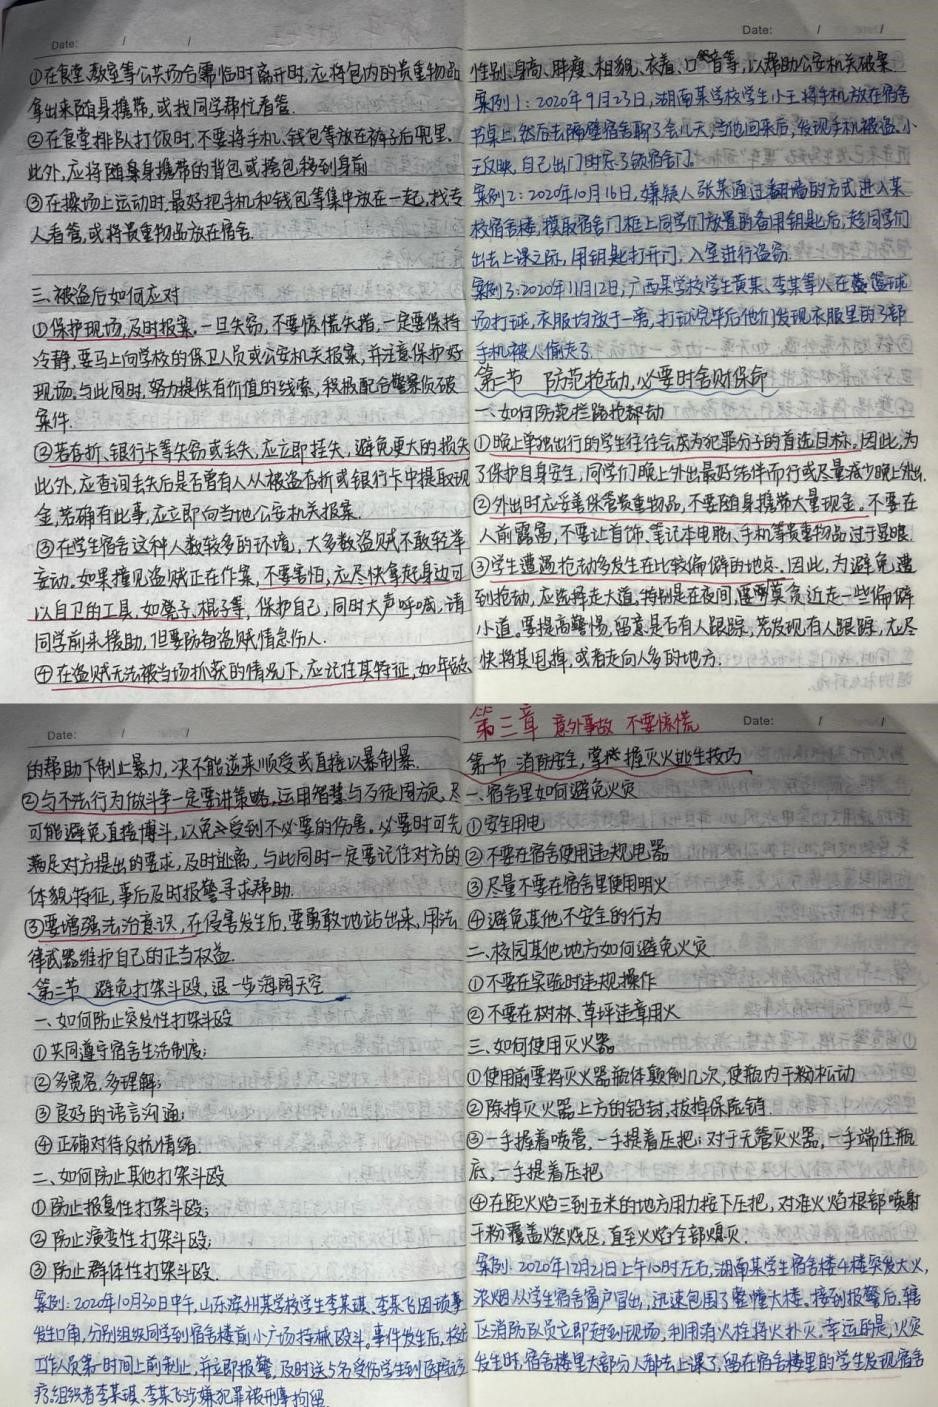 Date: / /
①在食堂、教室等公共场合需临时离开时,应将包内的贵重物品
拿出来随身携带,或找同学帮忙看管.
②在食堂排队打饭时,不要将手机、钱包等放在裤子后兜里,
此外,应将随身携带的背包或挎包移到身前
③在操场上运动时,最好把手机和钱包等集中放在一起,找专
人看管,或将贵重物品放在宿舍.
三、被盗后如何应对
①保护现场,及时报案,一旦失窃,不要惊慌失措,一定要保持
冷静,要马上向学校的保卫人员或公安机关报案,并注意保护好
现场.与此同时,努力提供有价值的线索,积极配合警察侦破
案件.
②若存折、银行卡等失窃或丢失,应立即挂失,避免更大的损失
此外,应查询丢失后是否曾有人从被盗存折或银行卡中提取现
金,若确有此事,应立即向当地公安机关报案.
③在学生宿舍这种人数较多的环境,大多数盗贼不敢轻举
妄动.如果撞见盗贼正在作案,不要害怕,应尽快拿起身边可
以自卫的工具,如凳子、棍子等,保护自己,同时大声呼喊,请
同学前来援助,但要防备盗贼情急伤人.
④在盗贼无法被当场抓获的情况下,应记住其特征,如年龄、
Date: / /
性别、身高、胖瘦、相貌、衣着、口音等,以帮助公安机关破案
案例1:2020年9月23日,湖南某学校学生小王将手机放在宿舍
书桌上,然后去隔壁宿舍聊了会儿天,当他回来后,发现手机被盗.小
王反映,自己出门时忘了锁宿舍门.
案例2:2020年10月16日,嫌疑人张某通过翻墙的方式进入某
校宿舍楼,摸取宿舍门框上同学们放置的备用钥匙后,趁同学们
出去上课之际,用钥匙打开门,入室进行盗窃.
案例3:2020年11月12日,广西某学校学生黄某、李某等人在篮球
场打球,衣服均放于一旁,打球完毕后他们发现衣服里的3部
手机被人偷走了.
第二节 防范抢劫,必要时舍财保命
一、如何防范拦路抢劫
①晚上单独出行的学生往往会成为犯罪分子的首选目标,因此,为
了保护自身安全,同学们晚上外出最好结伴而行或尽量减少晚上外出.
②外出时应妥善保管贵重物品,不要随身携带大量现金.不要在
人前露富,不要让首饰、笔记本电脑、手机等贵重物品过于显眼
③学生遭遇抢劫多发生在比较偏僻的地点.因此,为避免遭
到抢劫,应选择走大道,特别是在夜间,莫贪近走一些偏僻
小道,要提高警惕,留意是否有人跟踪,若发现有人跟踪,应尽
快将其甩掉,或者走向人多的地方.
Date: / /
的帮助下制止暴力,决不能逆来顺受或直接以暴制暴.
②与不法行为做斗争一定要讲策略,运用智慧与歹徒周旋,尽
可能避免直接博斗,以免受到不必要的伤害.必要时可先
满足对方提出的要求,及时逃离,与此同时一定要记住对方的
体貌特征,事后及时报警寻求帮助.
③要增强法治意识,在侵害发生后,要勇敢地站出来,用法
律武器维护自己的正当权益.
第二节 避免打架斗殴,退一步海阔天空
一、如何防止突发性打架斗殴
①共同遵守宿舍生活制度;
②多宽容,多理解;
③良好的语言沟通;
④正确对待反抗情绪.
二、如何防止其他打架斗殴
①防止报复性打架斗殴;
②防止演变性打架斗殴;
③防止群体性打架斗殴.
案例:2020年10月30日中午,山东滨州某学校学生李某琪、李某飞因琐事
发生口角,分别组织同学到宿舍楼前小广场持械殴斗.事件发生后,校方
工作人员第一时间上前制止,并立即报警,及时送5名受伤学生到医院治
疗.组织者李某琪、李某飞涉嫌犯罪被刑事拘留.
第三章 意外事故 不要惊慌
Date: / /
第一节 消防安全,掌握灭火逃生技巧
一、宿舍里如何避免火灾
①安全用电
②不要在宿舍使用违规电器
③尽量不要在宿舍里使用明火
④避免其他不安全的行为
二、校园其他地方如何避免火灾
①不要在实验时违规操作
②不要在树林、草坪违章用火
三、如何使用灭火器
①使用前要将灭火器瓶体颠倒几次,使瓶内干粉松动
②除掉灭火器上方的铅封,拔掉保险销.
③一手握着喷管,一手提着压把;对于无管灭火器,一手端住瓶
底,一手提着压把
④在距火焰三到五米的地方用力按下压把,对准火焰根部喷射
干粉覆盖燃烧区,直至火焰全部熄灭.
案例:2020年12月21日上午10时左右,湖南某学生宿舍楼4楼突发大火,
浓烟从学生宿舍窗户冒出,迅速包围了整幢大楼.接到报警后,辖
区消防队员立即赶到现场,利用消火栓将火扑灭.幸运的是,火灾
发生时,宿舍楼里大部分人都去上课了,留在宿舍楼里的学生发现宿舍